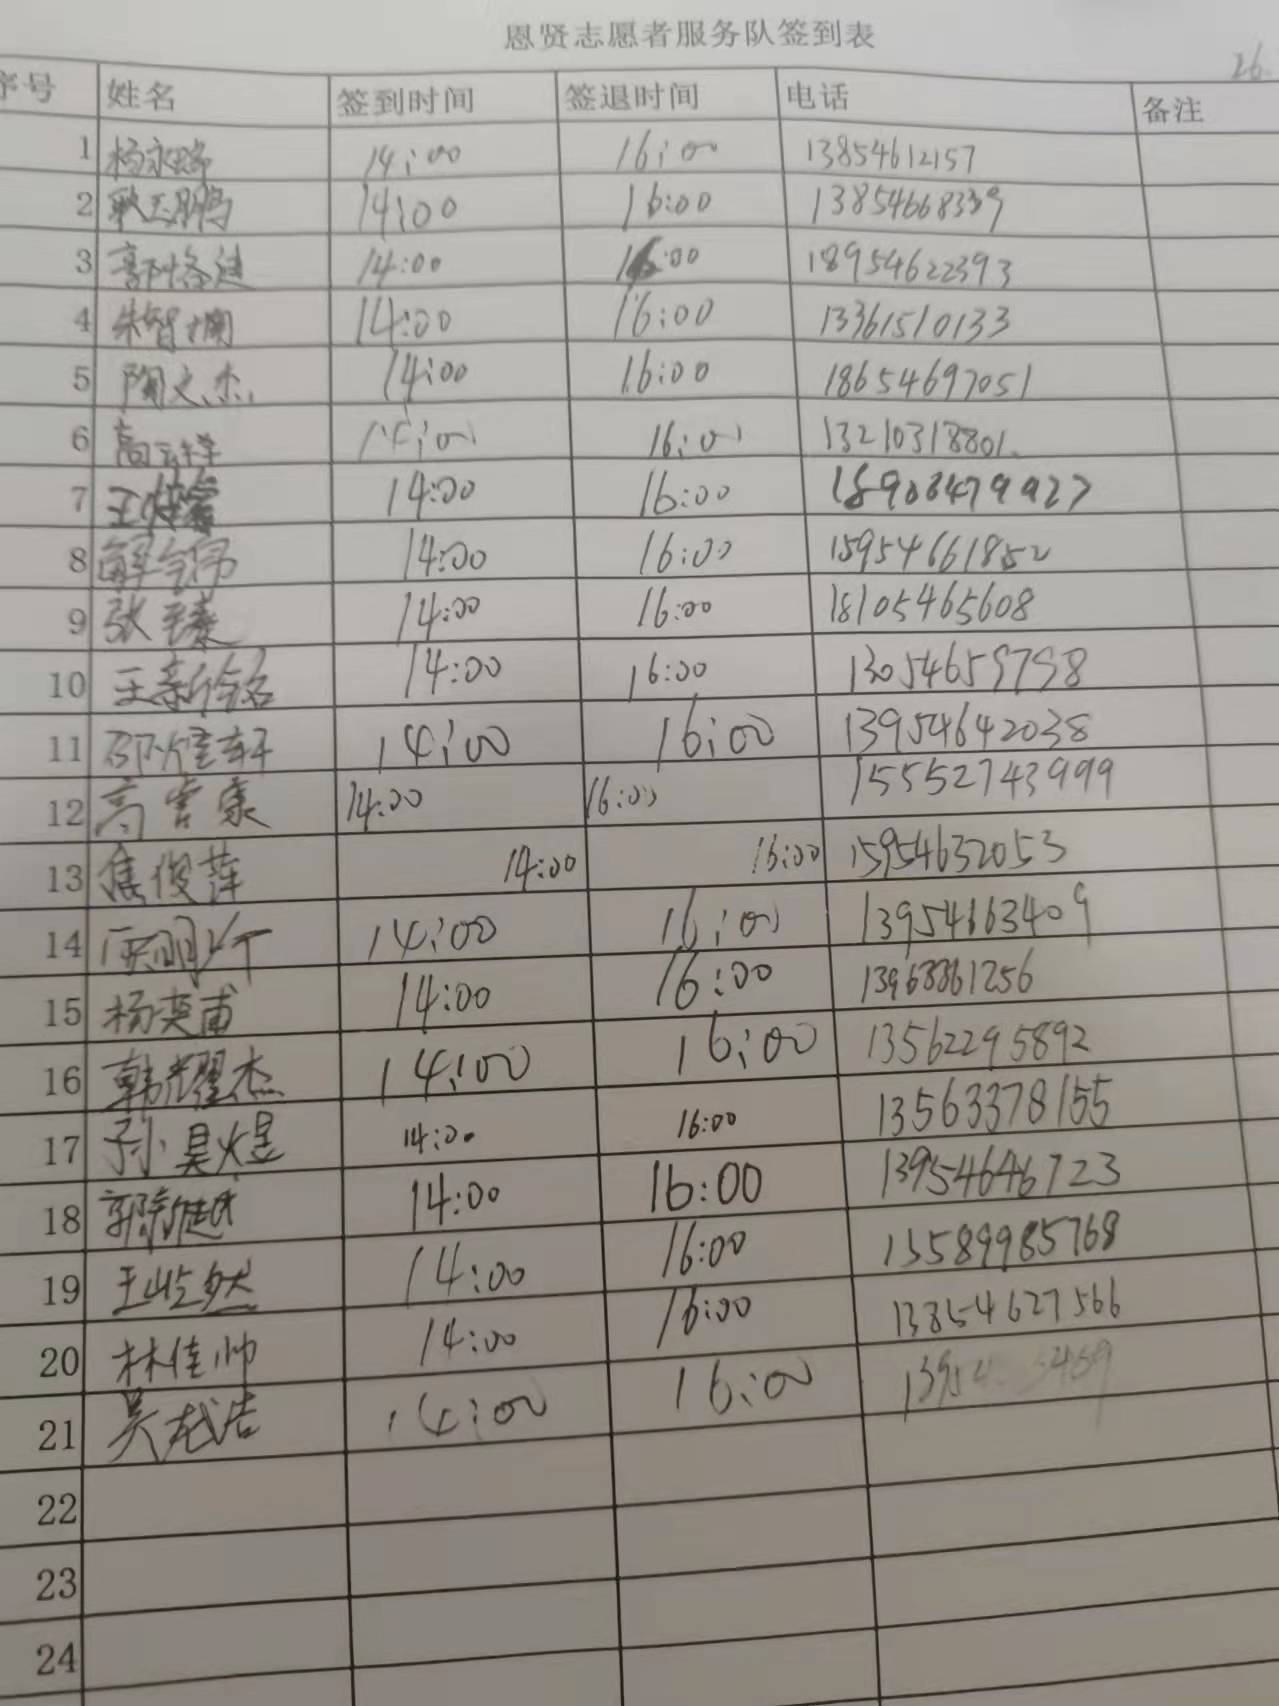 恩贤志愿者服务队签到表
26.
序号 姓名 签到时间 签退时间 电话 备注
1 杨永 14:00 16:00 13854612157
2 耿玉鹏 14:00 16:00 13854668339
3 郭恪进 14:00 16:00 18954622393
4 朱智 14:00 16:00 13361510133
5 陶文杰 14:00 16:00 18654697051
6 高云祥 14:00 16:00 13210318801
7 王 14:00 16:00
8 解 14:00 16:00 15954661852
9 张 14:00 16:00 18105465608
10 王新铭 14:00 16:00 13054659798
11 邵煜轩 14:00 16:00 13954642038
12 高雪康 14:00 16:00 15552743999
13 焦俊萍 14:00 16:00 15954632053
14 14:00 16:00 13954663409
15 杨英甫 14:00 16:00 13963361256
16 韩耀杰 14:00 16:00 13562295892
17 孙昊煜 14:00 16:00 13563378155
18 郭 14:00 16:00 13954646723
19 王屹然 14:00 16:00 13589985768
20 林佳帅 14:00 16:00 13854627566
21 吴 14:00 16:00
22
23
24